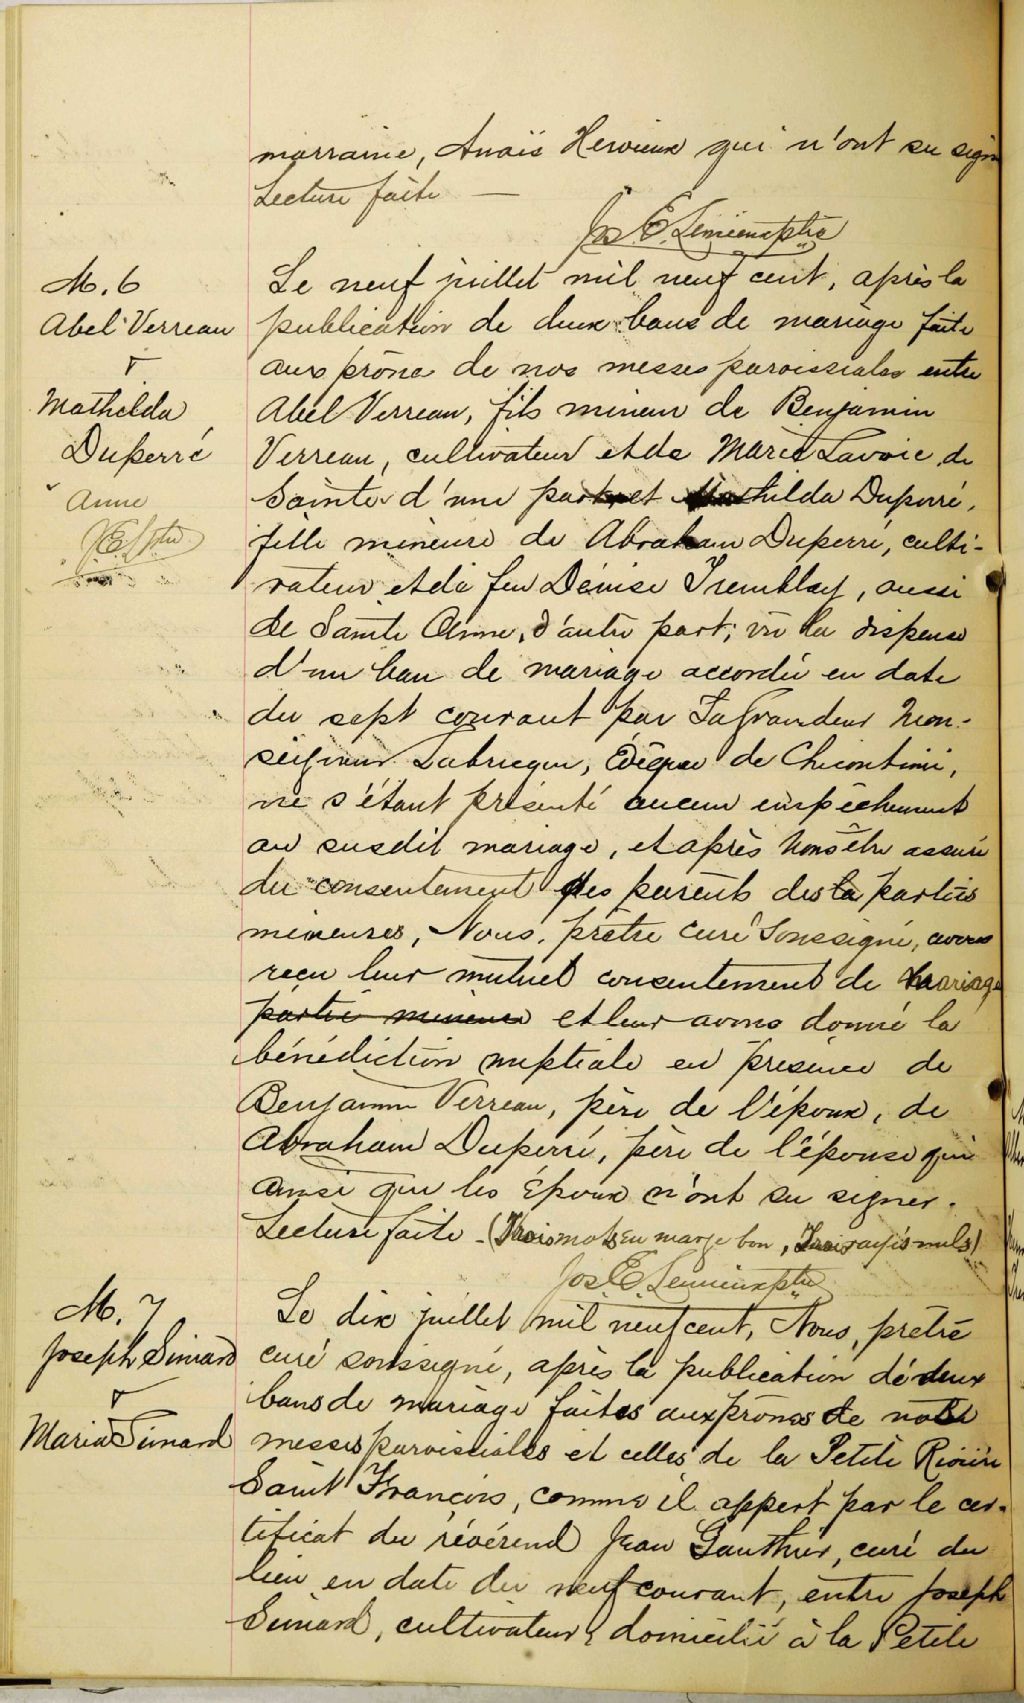 marraine, Anaïs Hervieux qui n'ont su sign
Lecture faite —
Jos. E. Lemieux ptre
M. 6
Abel Verreau
&
Mathilda
Duperré
Anne
J. E. L. ptre
Le neuf juillet mil neuf cent, après la
publication de deux bans de mariage faite
aux prône de nos messes paroissiales entre
Abel Verreau, fils mineur de Benjamin
Verreau, cultivateur et de Marie Lavoie de
Sainte d'une part et Mathilda Duperré,
fille mineure de Abraham Duperré, culti-
vateur et de feu Dénise Tremblay, aussi
de Sainte Anne, d'autre part; vu la dispense
d'un ban de mariage accordée en date
du sept courant par Sa Grandeur Mon-
seigneur Labrecque, Évêque de Chicoutimi,
ne s'étant présenté aucun empêchement
au susdit mariage, et après nous être assuré
du consentement des parents des la parties
mineures, Nous, prêtre curé soussigné, avons
reçu leur mutuel consentement de mariage
partie mineure et leur avons donné la
bénédiction nuptiale en présence de
Benjamin Verreau, père de l'époux, de
Abraham Duperré, père de l'épouse qui
ainsi que les époux n'ont su signer.
Lecture faite - (Trois mots en marge bon, Trois rayés nuls)
Jos. E. Lemieux ptre
M. 7
Joseph Simard
&
Maria Simard
Le dix juillet mil neuf cent, Nous, prêtre
curé soussigné, après la publication de deux
bans de mariage faites aux prônes de nos
messes paroissiales et celles de la Petite Rivière
Saint François, comme il appert par le cer-
tificat du révérend Jean Gauthier, curé du
lieu en date du neuf courant, entre Joseph
Simard, cultivateur, domicilié à la Petite